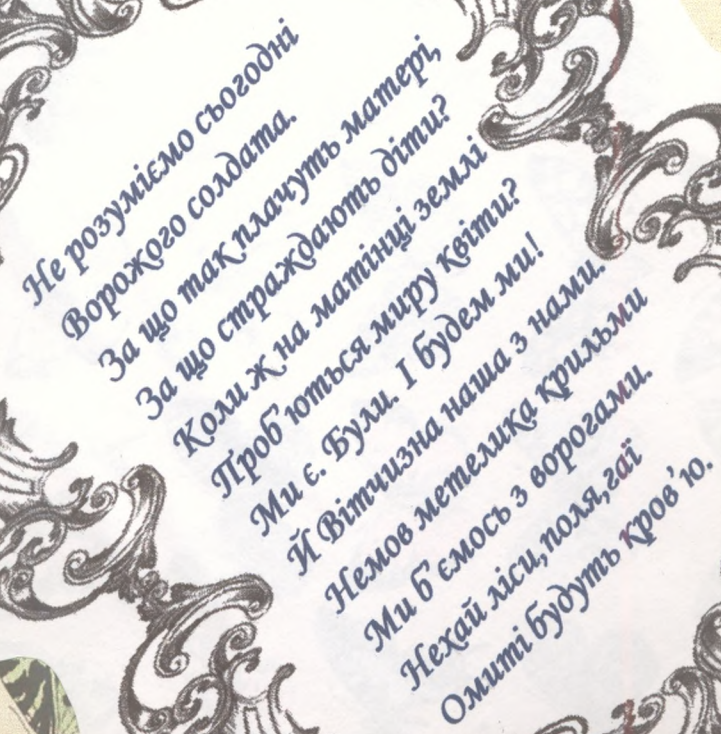 Не розуміємо сьогодні
Ворожого солдата.
За що так плачуть матері,
За що страждають діти?
Коли ж на матінці землі
Проб'ються миру квіти?
Ми є. Були. І будем ми!
Й Вітчизна наша з нами.
Немов метелика крильми
Ми б'ємось з ворогами.
Нехай ліси, поля, гаї
Омиті будуть кров'ю.